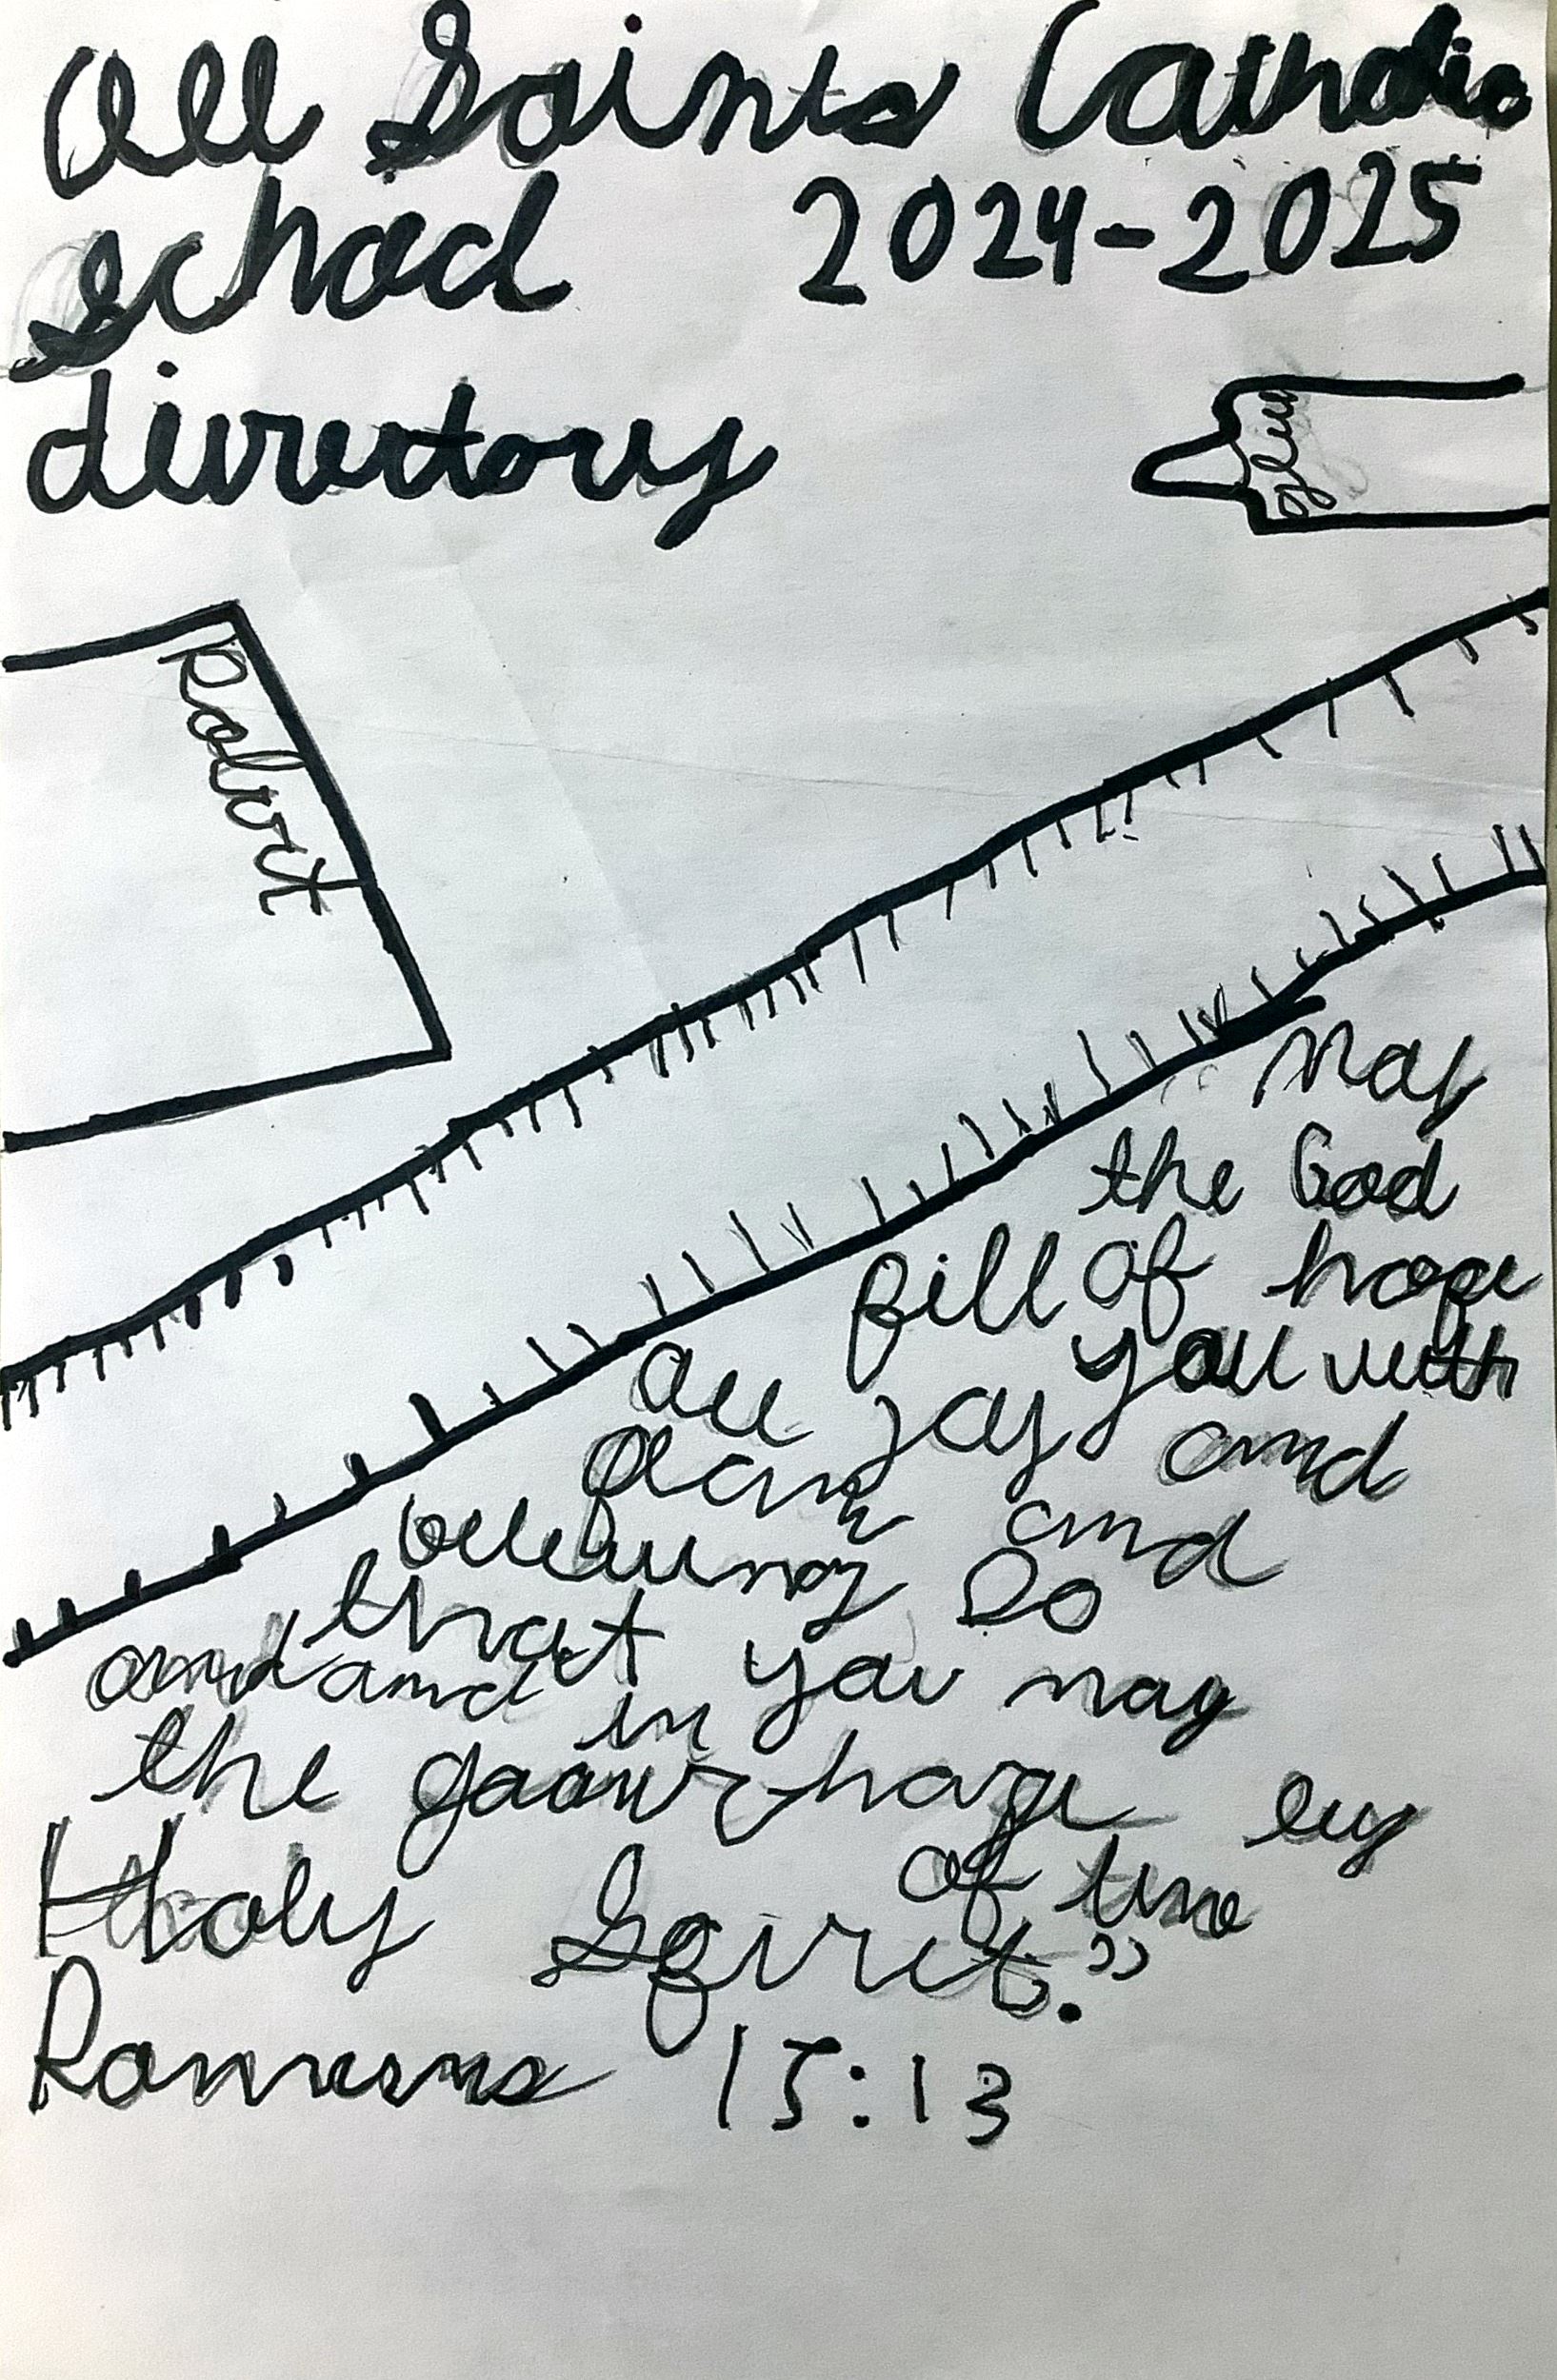 All Saints Catholic
school 2024-2025
directory
glue
May
the God
of hope
fill you with
all joy and
and
believing so
that you may
and and in
the hope by
of the
Holy Spirit.”
Romans 15:13